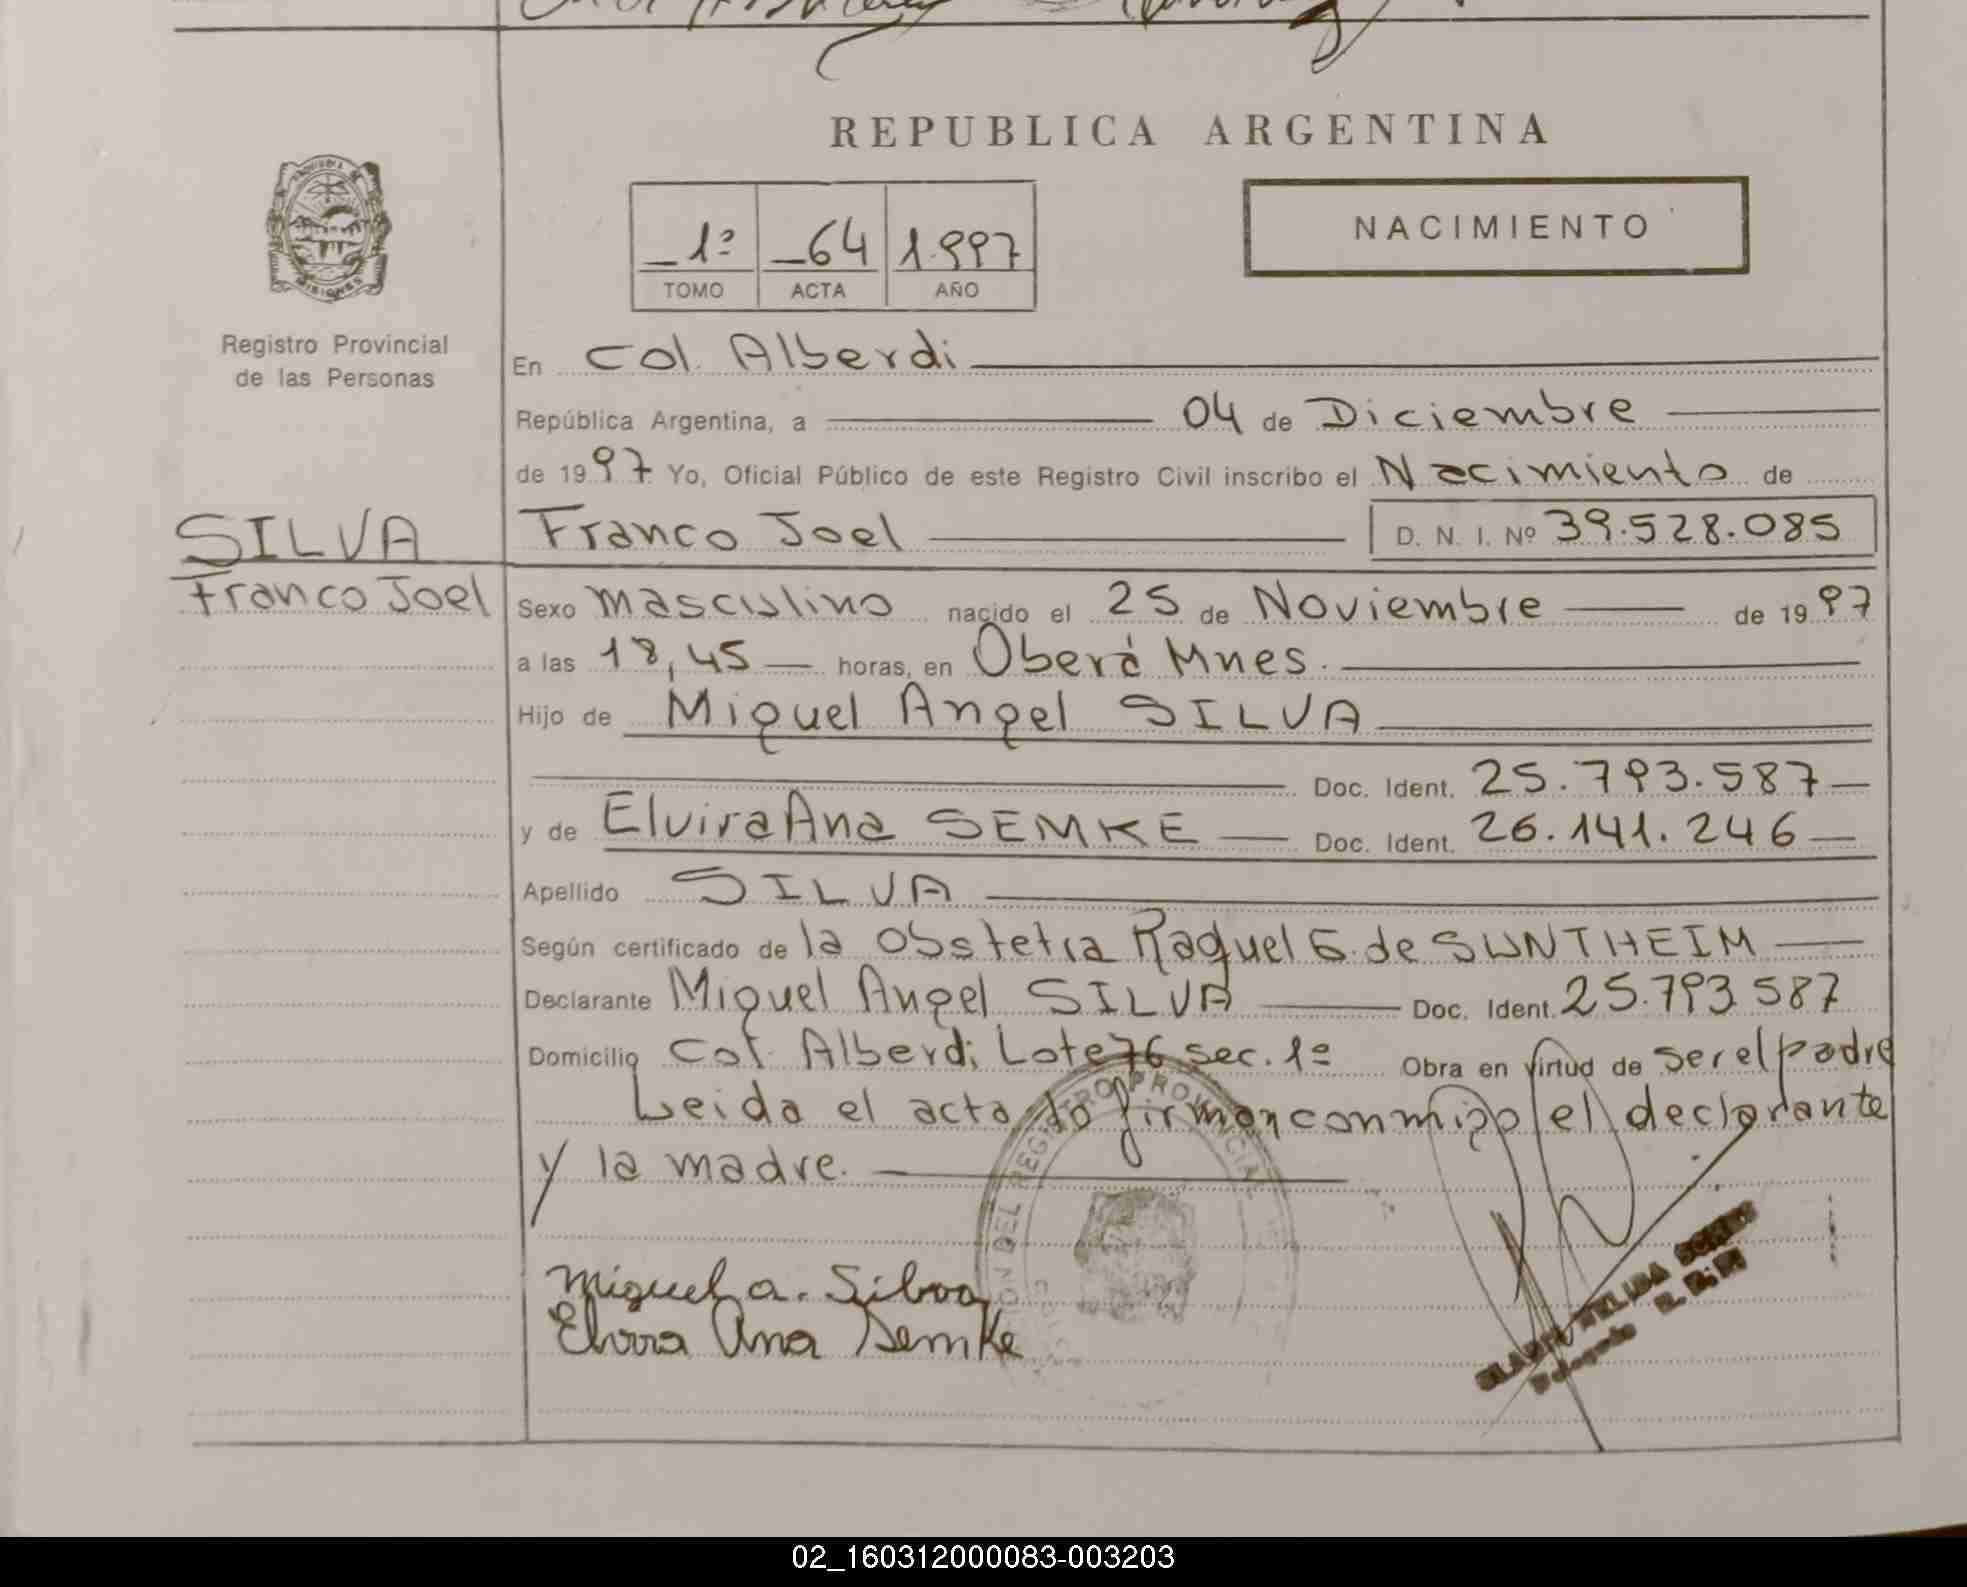 REPUBLICA ARGENTINA
1º 64 1.997
TOMO ACTA AÑO
NACIMIENTO
MISIONES
Registro Provincial
de las Personas
En Col. Alberdi
República Argentina, a 04 de Diciembre
de 1997 Yo, Oficial Público de este Registro Civil inscribo el Nacimiento de
SILVA
Franco Joel
Franco Joel D. N. I. Nº 39.528.085
Sexo masculino nacido el 25 de Noviembre de 1997
a las 18,45 horas, en Oberá Mnes.
Hijo de Miguel Angel SILVA
Doc. Ident. 25.793.587
y de Elvira Ana SEMKE Doc. Ident. 26.141.246
Apellido SILVA
Según certificado de la Obstetra Raquel G. de SUNTHEIM
Declarante Miguel Angel SILVA Doc. Ident. 25.793.587
Domicilio Col. Alberdi Lote 76 sec. 1º Obra en virtud de ser el padre
Leida el acta la firman conmigo el declarante
y la madre.
DEL REGISTRO PROVINCIAL
Miguel a. Silva
Elvira Ana Semke
02_160312000083-003203